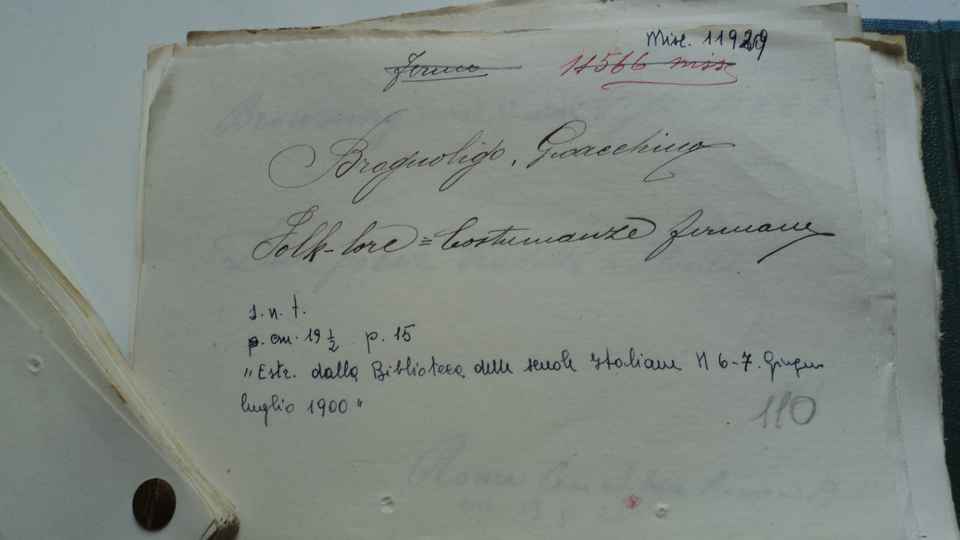 Misc. 11929
Fermo 11566 misc
Brognoligo, Gioacchino
Folk-lore = Costumanze fermane
s. n. t.
p. cm. 19 ½ p. 15
"Estr. dalla Biblioteca delle scuole Italiane N 6-7. Giugno
luglio 1900"
110